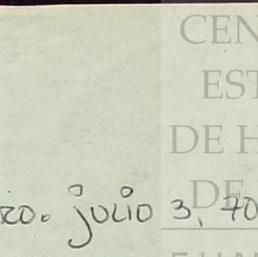 CEN
EST
DE H
DE
zo. julio 3, 70